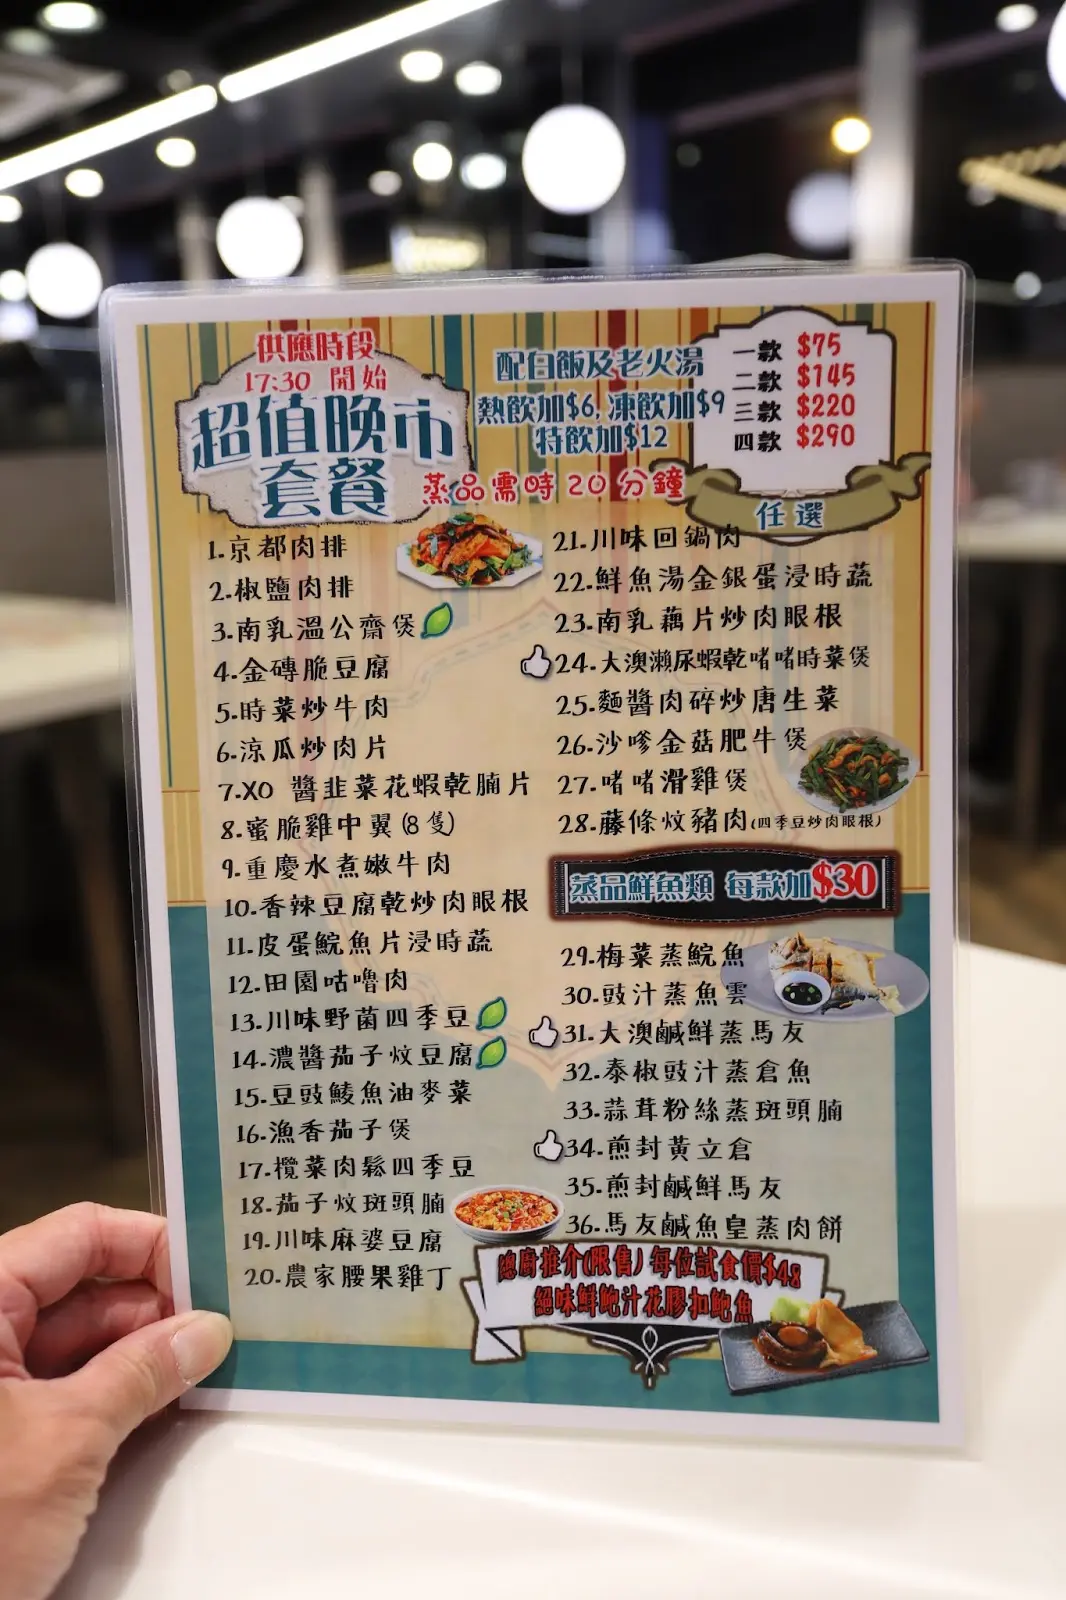 供應時段
17:30 開始
超值晚市
套餐
配白飯及老火湯
熱飲加$6, 凍飲加$9
特飲加$12
蒸品需時20分鐘
一款 $75
二款 $145
三款 $220
四款 $290
任選
1.京都肉排
2.椒鹽肉排
3.南乳溫公齋煲
4.金磚脆豆腐
5.時菜炒牛肉
6.涼瓜炒肉片
7.XO 醬韭菜花蝦乾腩片
8.蜜脆雞中翼(8隻)
9.重慶水煮嫩牛肉
10.香辣豆腐乾炒肉眼根
11.皮蛋鯇魚片浸時蔬
12.田園咕嚕肉
13.川味野菌四季豆
14.濃醬茄子炆豆腐
15.豆豉鯪魚油麥菜
16.漁香茄子煲
17.欖菜肉鬆四季豆
18.茄子炆斑頭腩
19.川味麻婆豆腐
20.農家腰果雞丁
21.川味回鍋肉
22.鮮魚湯金銀蛋浸時蔬
23.南乳藕片炒肉眼根
24.大澳瀨尿蝦乾啫啫時菜煲
25.麵醬肉碎炒唐生菜
26.沙嗲金菇肥牛煲
27.啫啫滑雞煲
28.藤條炆豬肉(四季豆炒肉眼根)
蒸品鮮魚類 每款加$30
29.梅菜蒸鯇魚
30.豉汁蒸魚雲
31.大澳鹹鮮蒸馬友
32.泰椒豉汁蒸倉魚
33.蒜茸粉絲蒸斑頭腩
34.煎封黃立倉
35.煎封鹹鮮馬友
36.馬友鹹魚皇蒸肉餅
總廚推介(限售)每位試食價$48
絕味鮮鮑汁花膠扣鮑魚